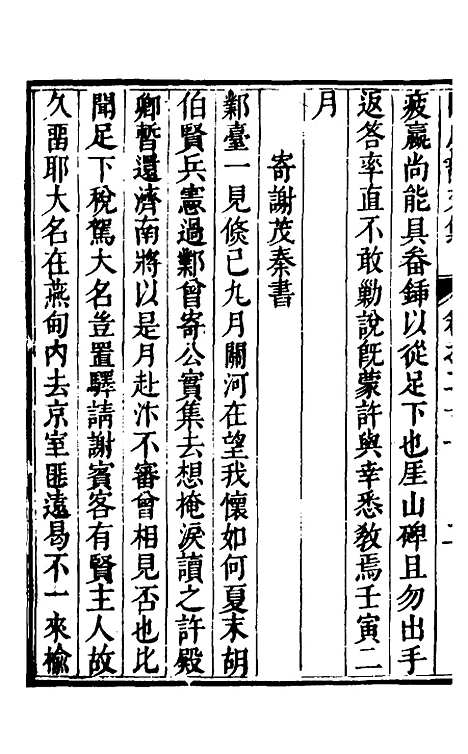 疲羸尚能具畚鍤以從足下也厓山碑且勿出手
返答率直不敢勦說既蒙許與幸悉敎焉壬寅二
月
寄謝茂秦書
鄴臺一見倐已九月關河在望我懷如何夏末胡
伯賢兵憲過鄴曾寄公實集去想掩淚讀之許殿
卿暫還濟南將以是月赴汴不審曾相見否也比
聞足下稅駕大名豈置驛請謝賓客有賢主人故
久畱耶大名在燕甸內去京室匪遠曷不一來楡